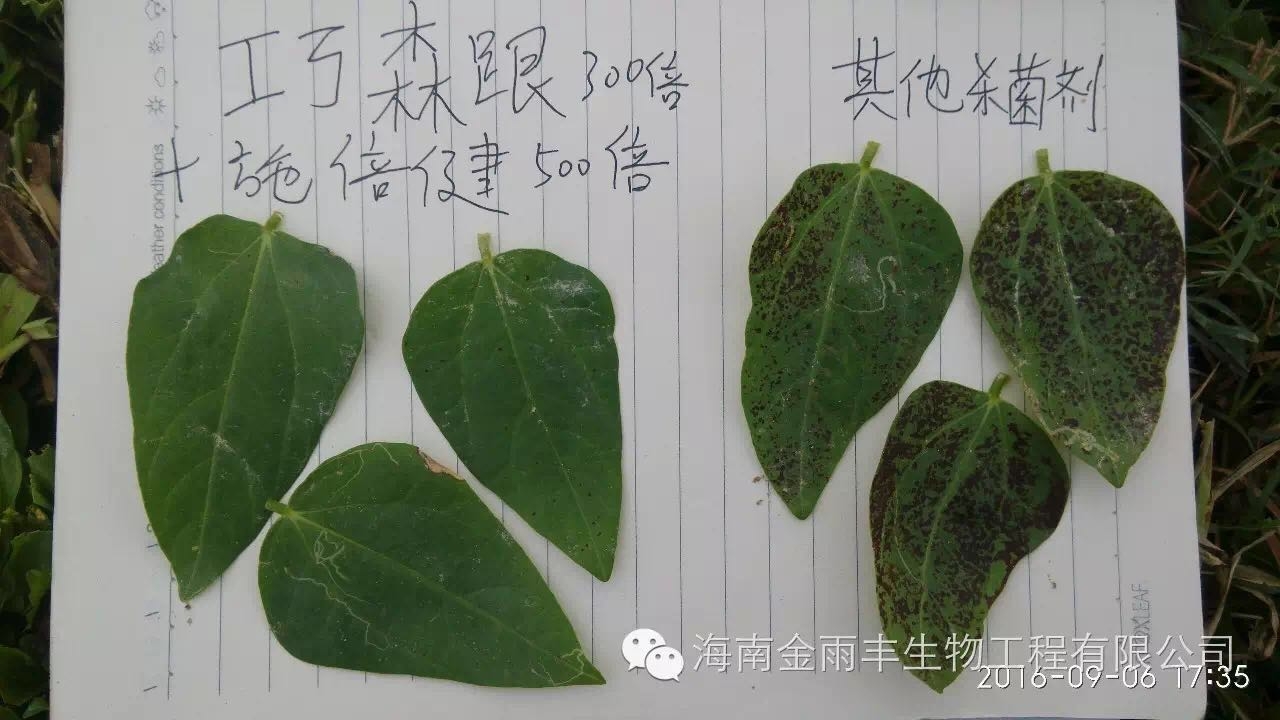 工巧森跟300倍
+施倍健500倍
其他杀菌剂
weather conditions
OXLEAF
海南金雨丰生物工程有限公司
2016-09-06 17:35